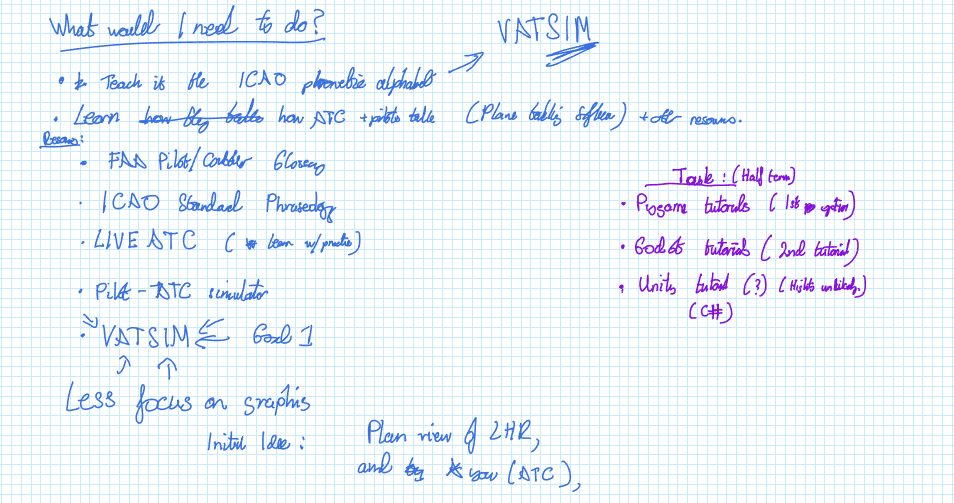 What would I need to do?
VATSIM
Teach it the ICAO phonetic alphabet
Learn how they talk how ATC + pilots talk (Plane talking software) + other resources.
Resources:
FAA Pilot/Controller Glossary
ICAO Standard Phraseology
LIVE ATC (learn w/practice)
Pilot-ATC simulator
VATSIM Good 1
Less focus on graphics
Initial Idea: Plan view of LHR,
and you (ATC),
Task: (Half term)
Pygame tutorials (1st option)
Godot tutorials (2nd tutorial)
Unity tutorial (?) (Highly unlikely.)
(C#)